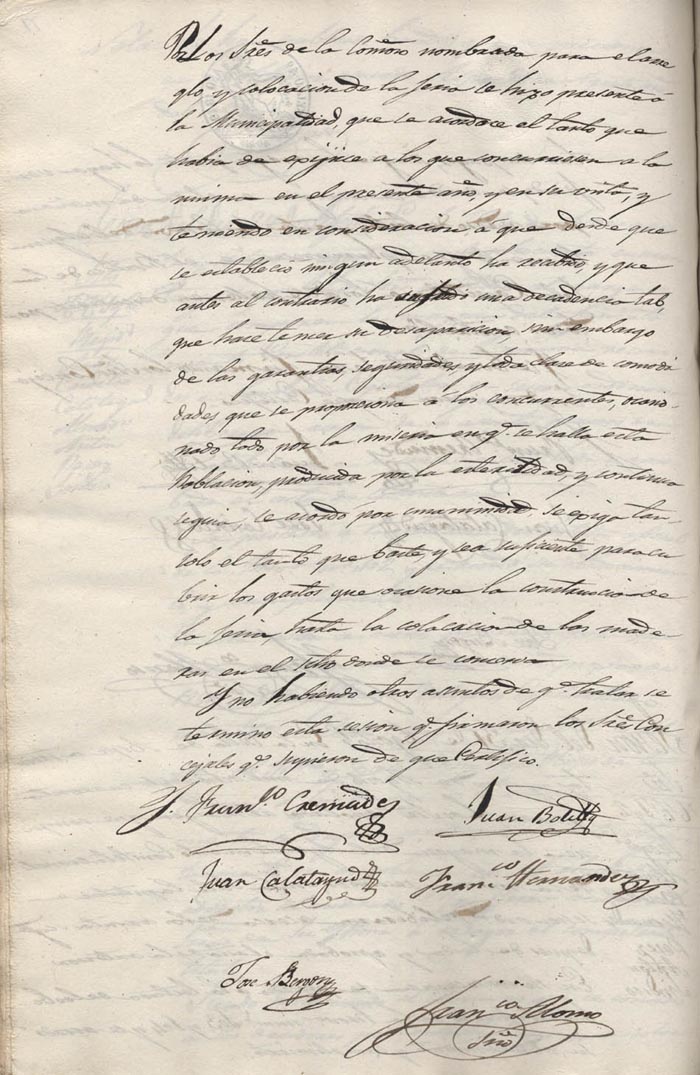 Por los Sres de la Comon nombrada para el arre
glo, y colocacion de la feria se hizo presente á
la Municipalidad, que se acordace el tanto que
habia de exijirce a los que concurriesen a la
misma en el presente año, y en su vista, y
teniendo en consideracion á que desde que
se establecio ningun adelanto ha recibido, y que
antes al contrario ha sufrido una decadencia tal,
que hace temer su desaparicion, sin embargo
de las garantias, seguridades y toda clase de comodi
dades que se proporciona á los concurrentes, ocacio
nado todo por la miseria en q. se halla esta
Poblacion, producida por la esterilidad, y continua
sequia; se acordó por unanimidad se exija tan
solo el tanto que baste, y sea suficiente para cu
brir los gastos que ocasione la construccion de
la feria, hasta la colocacion de las made
ras en el sitio donde se conserva
Y no habiendo otros asuntos de q. tratar se
termino esta sesion q. firmaron los Sres Con
cejales q. supieron de que Certifico.
Franco Cremades
Juan Botella
Juan Calatayud
Franco Hernandez
Jose
Juan
Srio